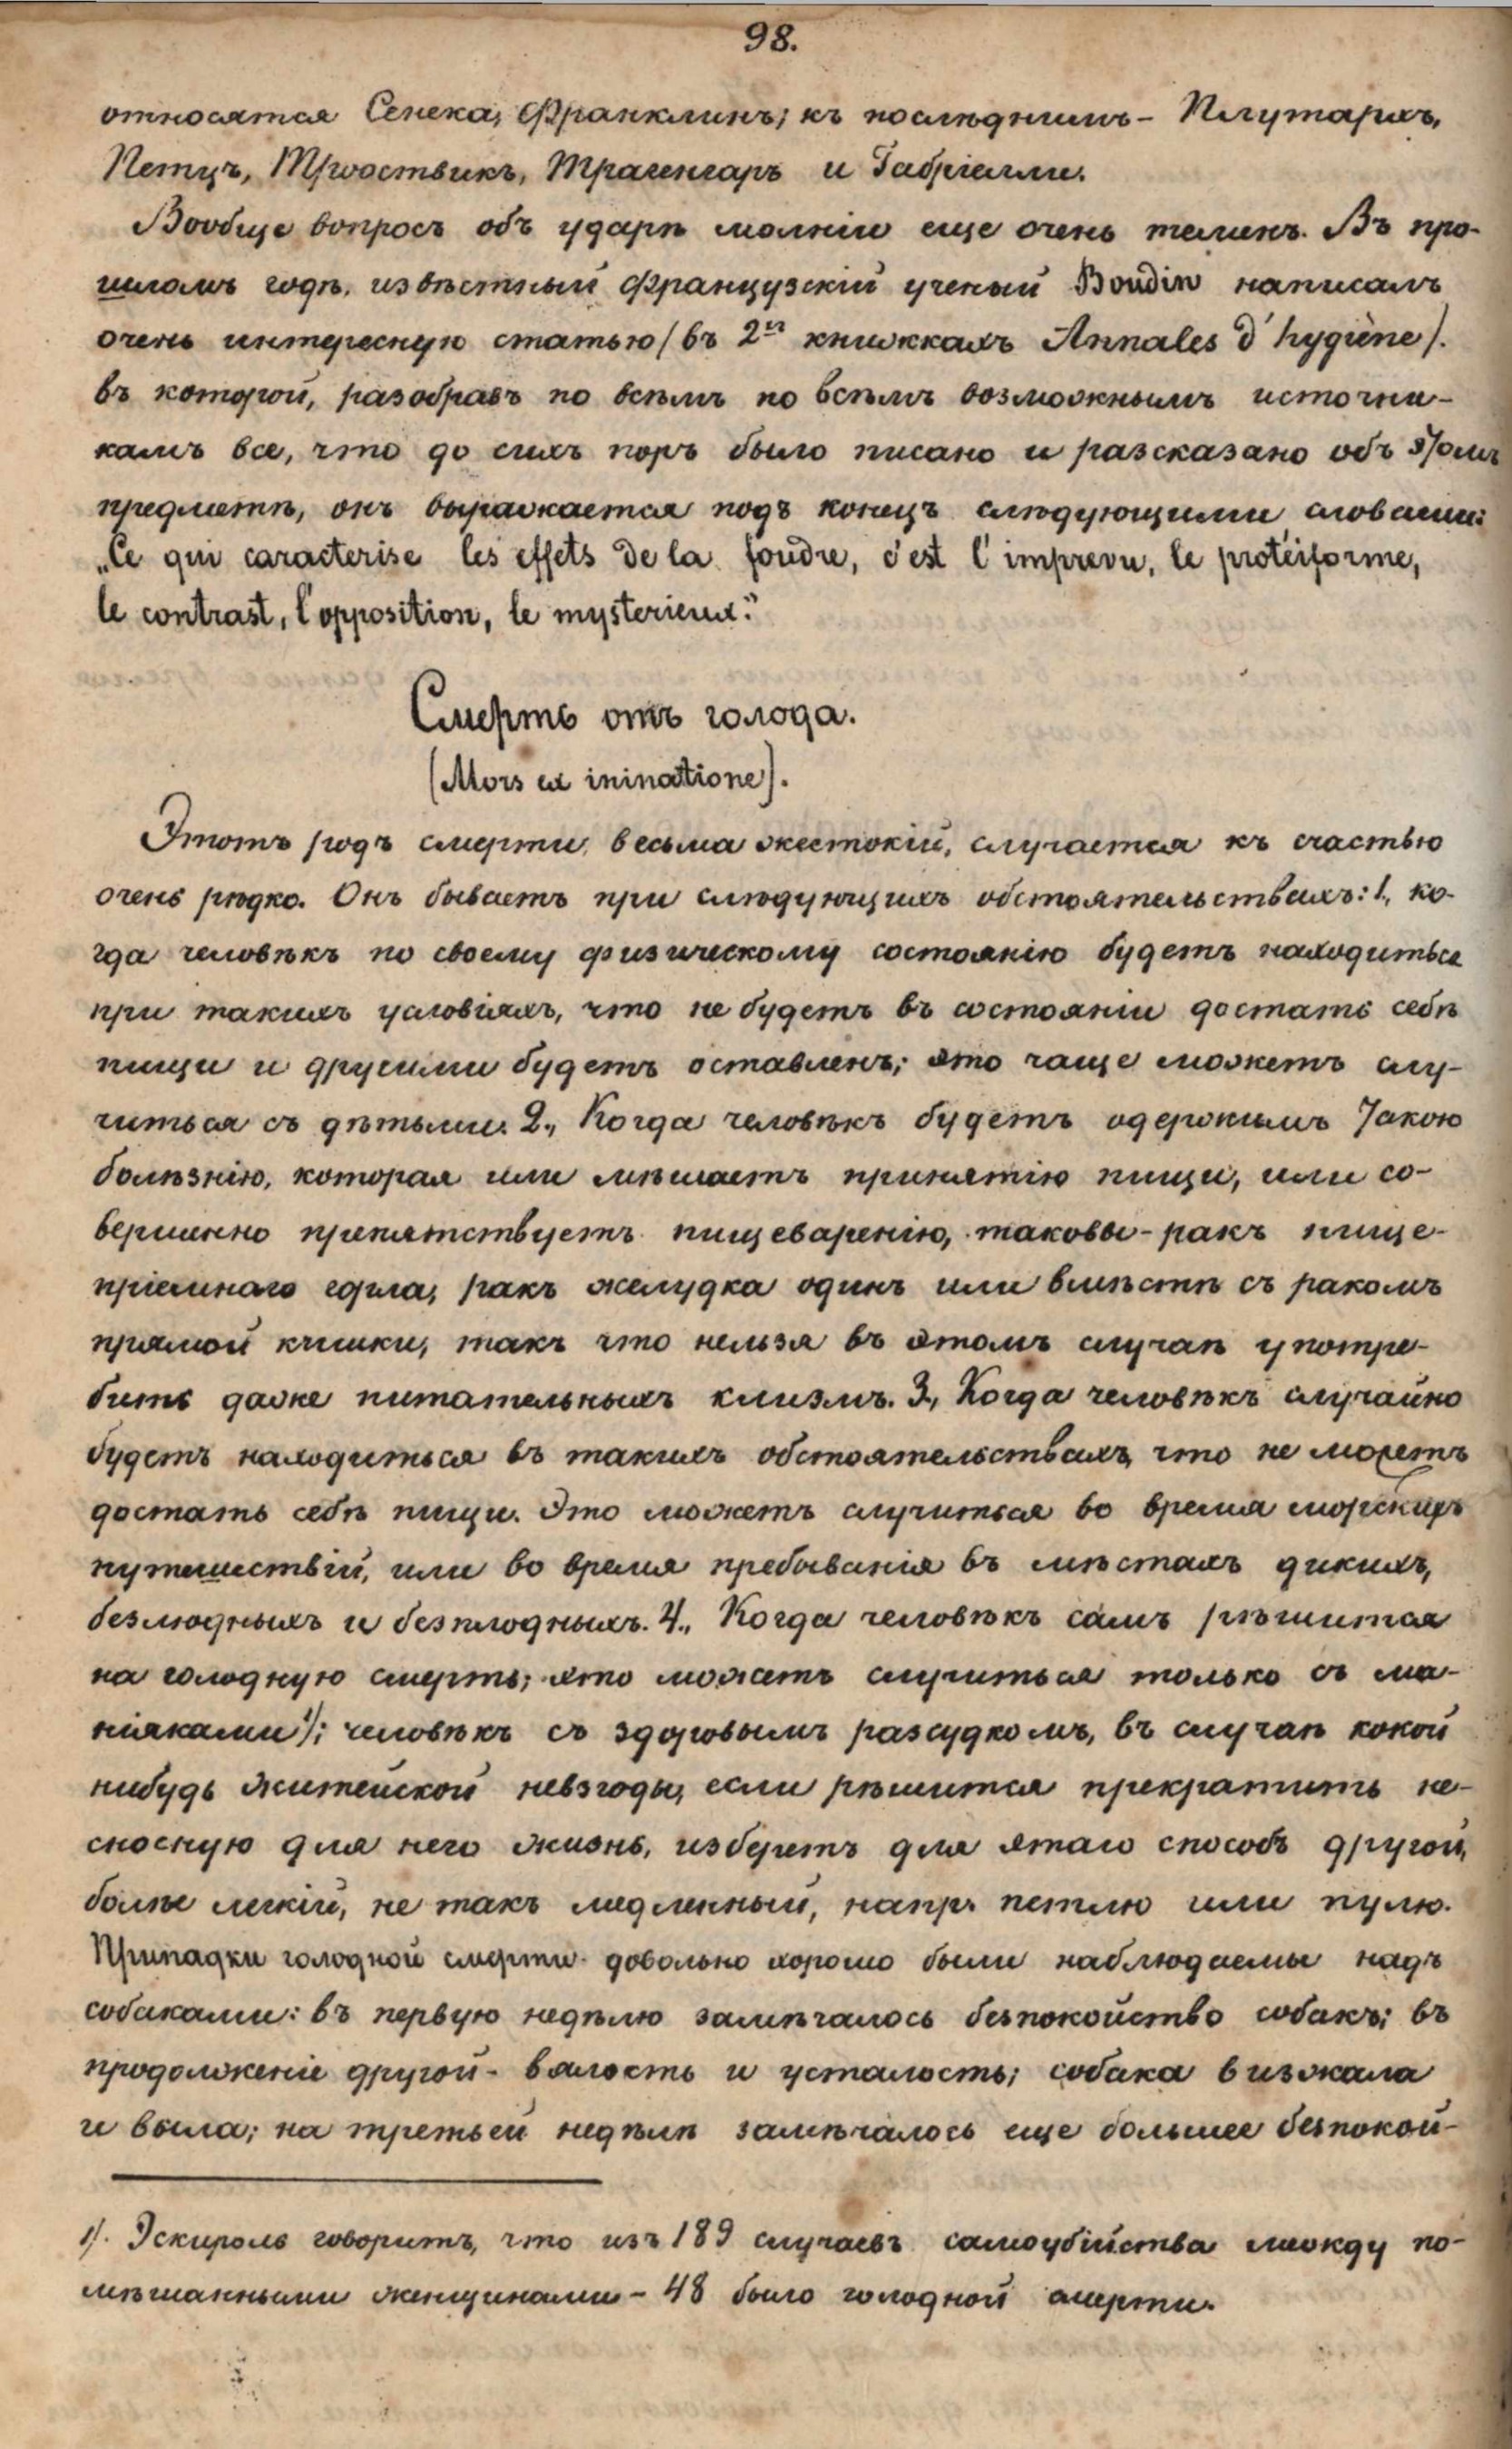 98.
относятся Сенека, Франклинъ; къ послѣднимъ - Плутархъ,
Петцъ, Трооствикъ, Трагенгаръ и Габріелли.
Вообще вопросъ объ ударѣ молніи еще очень теменъ. Въ про-
шломъ годѣ, извѣстный французскій ученый Boudin написалъ
очень интересную статью (въ 2хъ книжкахъ Annales d'hygiène).
въ которой, разобравъ по всѣмъ по всѣмъ возможнымъ источни-
камъ все, что до сихъ поръ было писано и разсказано объ этомъ
предметѣ, онъ выражается подъ конецъ слѣдующими словами:
„Ce qui caracterise les effets de la foudre, c'est l'imprevu, le protéiforme,
le contrast, l'opposition, le mysterieux."
Смерть отъ голода.
(Mors ex ininatione).
Этотъ родъ смерти, весьма жестокій, случается къ счастью
очень рѣдко. Онъ бываетъ при слѣдующихъ обстоятельствахъ: 1., ко-
гда человѣкъ по своему физическому состоянію будетъ находиться
при такихъ условіяхъ, что не будетъ въ состояніи достать себѣ
пищи и другими будетъ оставленъ; это чаще можетъ слу-
читься съ дѣтьми. 2., Когда человѣкъ будетъ одержимъ такою
болѣзнію, которая или мѣшаетъ принятію пищи, или со-
вершенно препятствуетъ пищеваренію, таковы - ракъ пище-
пріемнаго горла, ракъ желудка одинъ или вмѣстѣ съ ракомъ
прямой кишки, такъ что нельзя въ этомъ случаѣ употре-
бить даже питательныхъ клизмъ. 3., Когда человѣкъ случайно
будетъ находиться въ такихъ обстоятельствахъ, что не можетъ
достать себѣ пищи. Это можетъ случиться во время морскихъ
путешествій, или во время пребыванія въ мѣстахъ дикихъ,
безлюдныхъ и безплодныхъ. 4., Когда человѣкъ самъ рѣшится
на голодную смерть; это можетъ случиться только съ ма-
ніяками 1); человѣкъ съ здоровымъ разсудкомъ, въ случаѣ кокой
нибудь житейской невзгоды, если рѣшится прекратить не-
сносную для него жизнь, изберетъ для этаго способъ другой,
болѣе легкій, не такъ медленный, напр. петлю или пулю.
Припадки голодной смерти довольно хорошо были наблюдаемы надъ
собаками: въ первую недѣлю замѣчалось безпокойство собакъ; въ
продолженіе другой - вялость и усталость; собака визжала
и выла; на третьей недѣлѣ замѣчалось еще большее безпокой-
1). Эскироль говоритъ, что изъ 189 случаевъ самоубійства между по-
мѣшанными женщинами - 48 было голодной смерти.